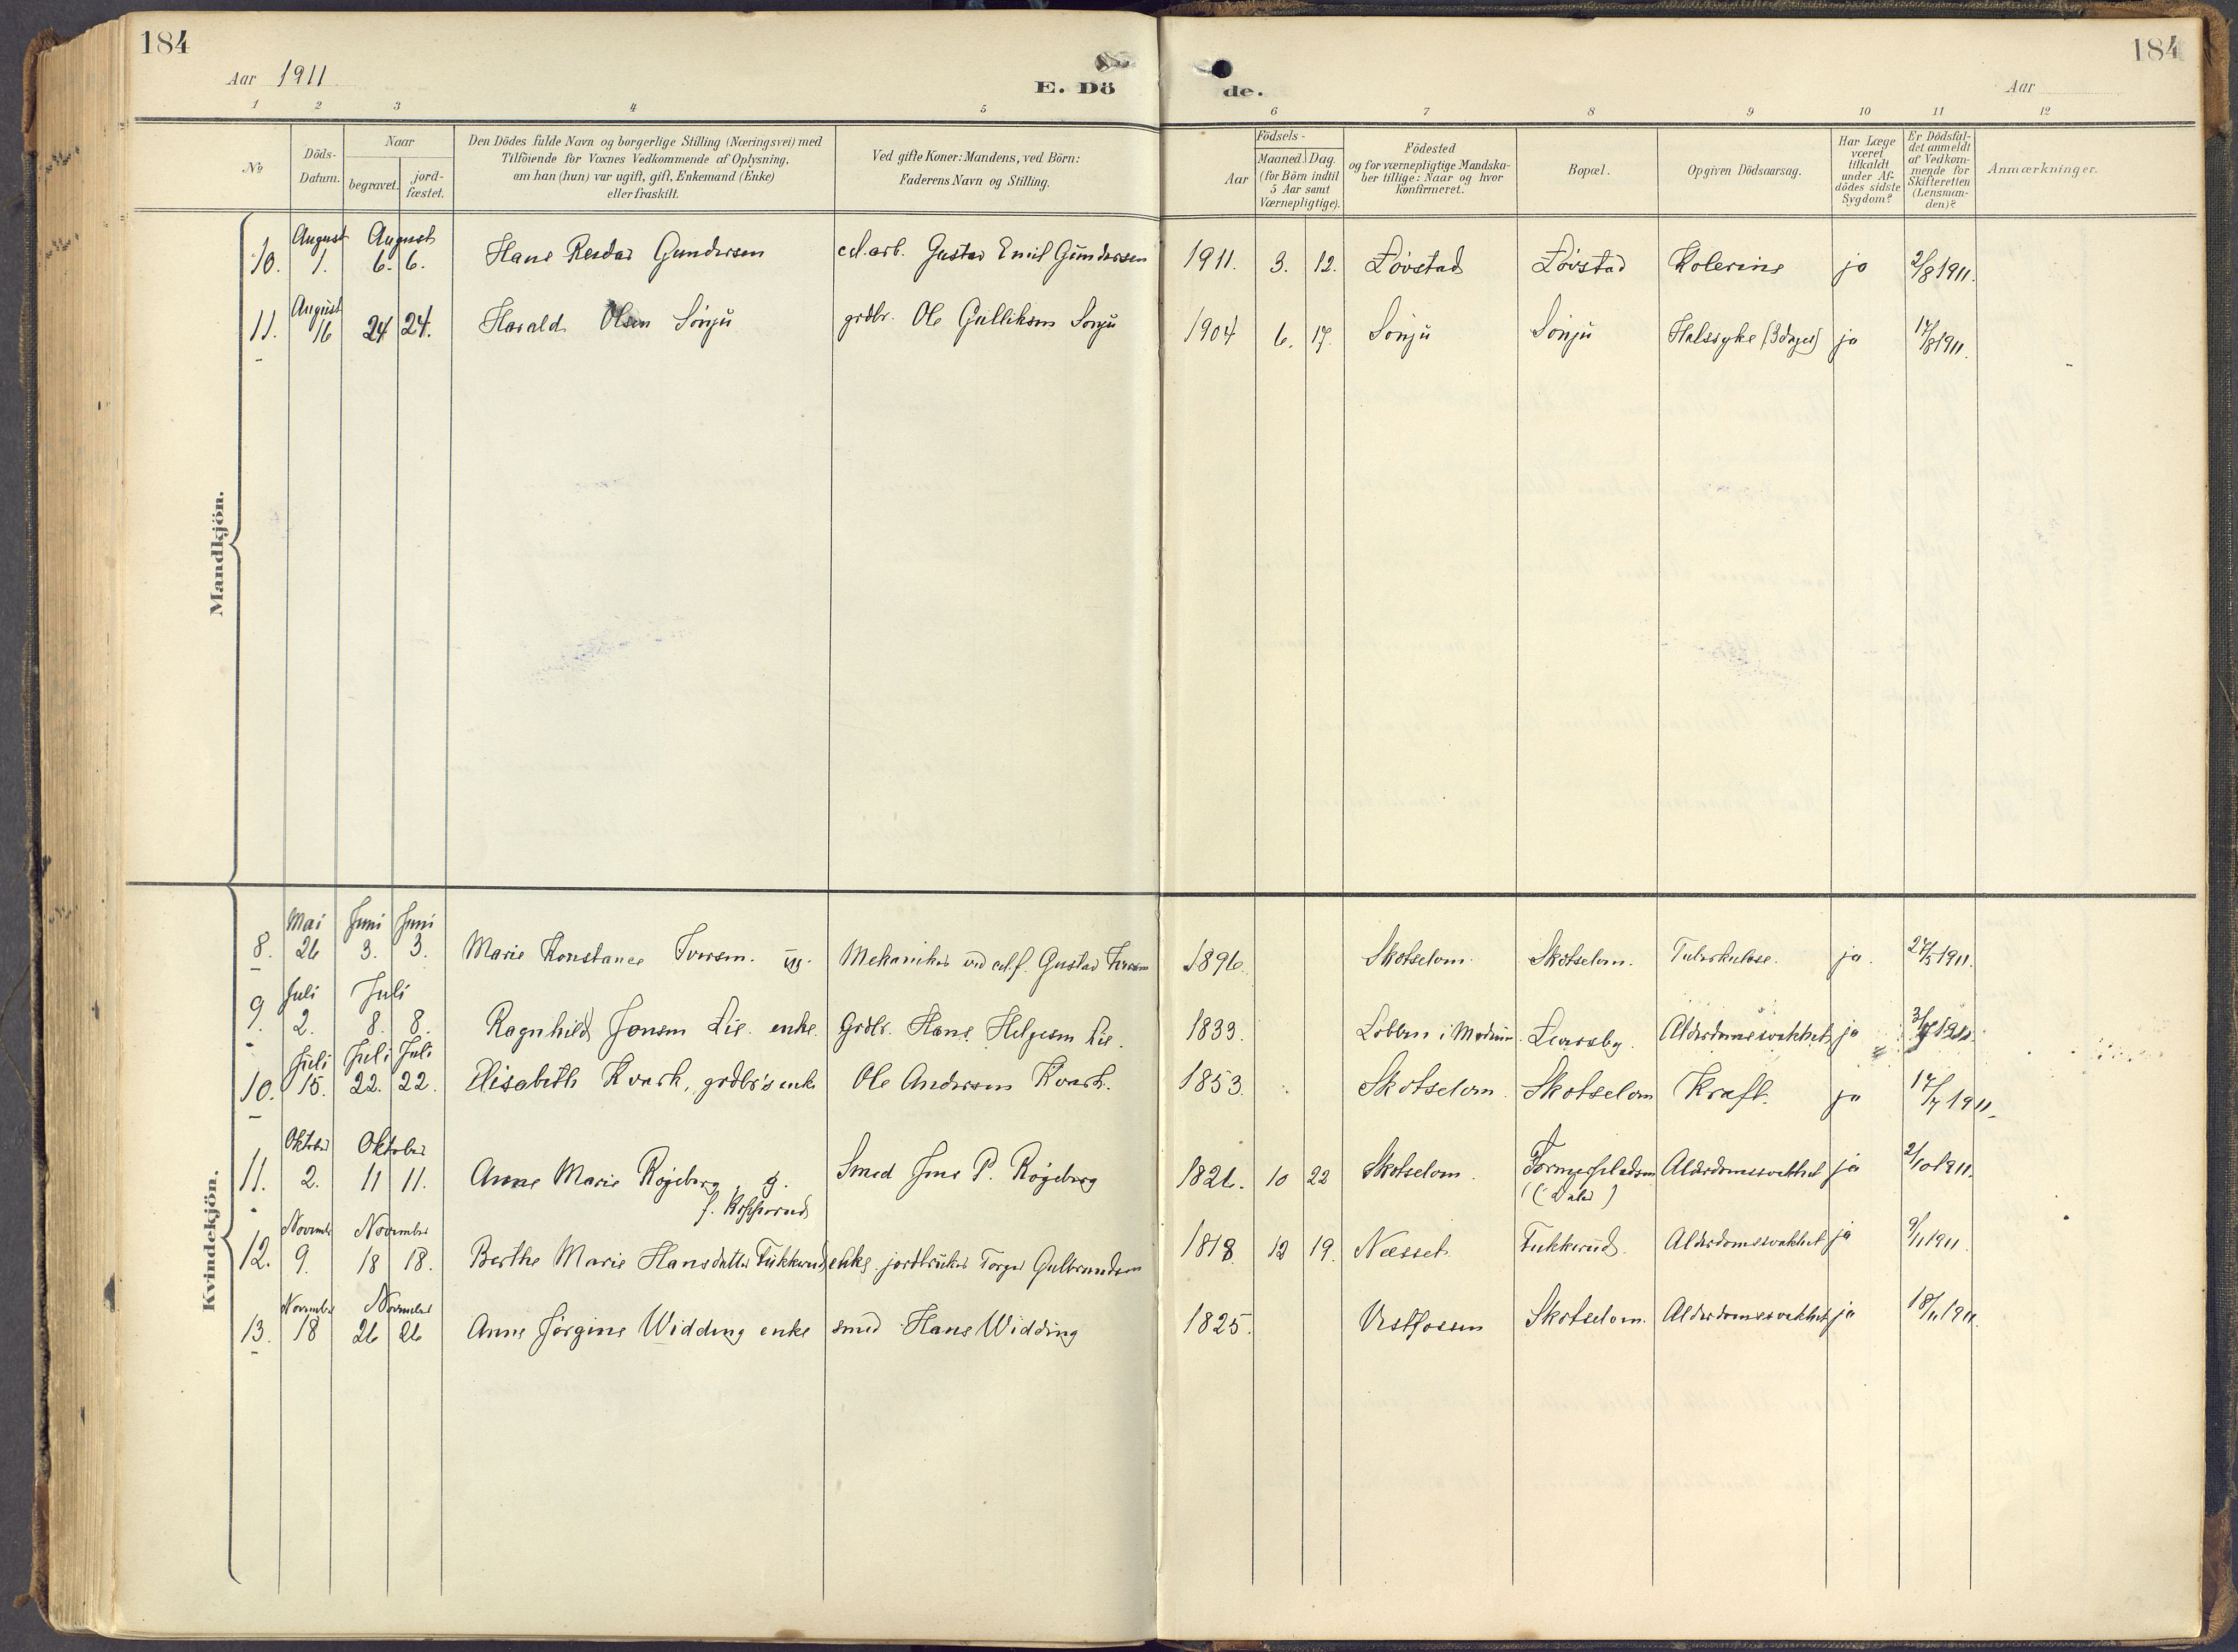 184
184
Aar 1911
E. Dö
de.
Aar
1 2 3 4 5 6 7 8 9 10 11 12
№
Döds-
Datum.
Naar
begravet.
jord-
fæstet.
Den Dödes fulde Navn og borgerlige Stilling (Næringsvei) med
Tilföiende for Voxnes Vedkommende af Oplysning,
om han (hun) var ugift, gift, Enkemand (Enke)
eller fraskilt.
Ved gifte Koner: Mandens, ved Börn:
Faderens Navn og Stilling.
Födsels-
Aar
Maaned. Dag.
(for Börn indtil
5 Aar samt
Værnepligtige).
Födested
og for værnepligtige Mandska-
ber tillige: Naar og hvor
Konfirmeret.
Bopæl.
Opgiven Dödsaarsag.
Har Læge
været
tilkaldt
under Af-
dödes sidste
Sygdom?
Er Dödsfal-
det anmeldt
af Vedkom-
mende for
Skifteretten
(Lensman-
den)?
Anmærkninger.
Mandkjön.
August August
10. 1. 6. 6. Hans Reidar Gundersen cel.arb. Gustav Emil Gundersen 1911. 3. 12. Lövstad Lövstad Kolerine ja 2/8 1911.
August
11. 16 24 24. Harald Olsen Sönju grdbr. Ole Gulliksen Sönju 1904 6. 17. Sönju Sönju Halssyke (3 dager) ja 17/8 1911.
Kvindekjön.
Mai Juni Juni
8. 26 3. 3. Marie Konstance Iversen. ug. Mekaniker ved cel.f. Gustav Iversen 1896. Skotselven. Skotselven. Tuberkulose. ja. 27/5 1911.
Juli Juli
9. 2. 8. 8. Ragnhild Jonsen Lie. enke. Grdbr. Hans Helgesen Lie. 1833. i Modum. Alderdomssvakhet ja 3/7 1911.
Juli Juli Juli
10. 15. 22. 22. Elisabeth Kvark, grdbr's enke Ole Andersen Kvark. 1853. Skotselven. Skotselven Kræft. ja 17/7 1911.
Oktober Oktober
11. 2. 11 11. Anne Marie Rögeberg, g. Smed Jens P. Rögeberg 1826. 10 22 Skotselven. Alderdomssvakhet ja 2/10 1911.
f. Kopperud
November November
12. 9. 18 18. Berthe Marie Hansdatter Fukkerud, enke. jordbruker Torger Gulbrandsen 1818 12 19. Næsset. Fukkerud. Alderdomssvakhet ja 9/11 1911.
November November
13. 18 26 26 Anne Jörgine Widding enke smed Hans Widding 1825. Vestfossen Skotselven. Alderdomssvakhet ja 18/11 1911.